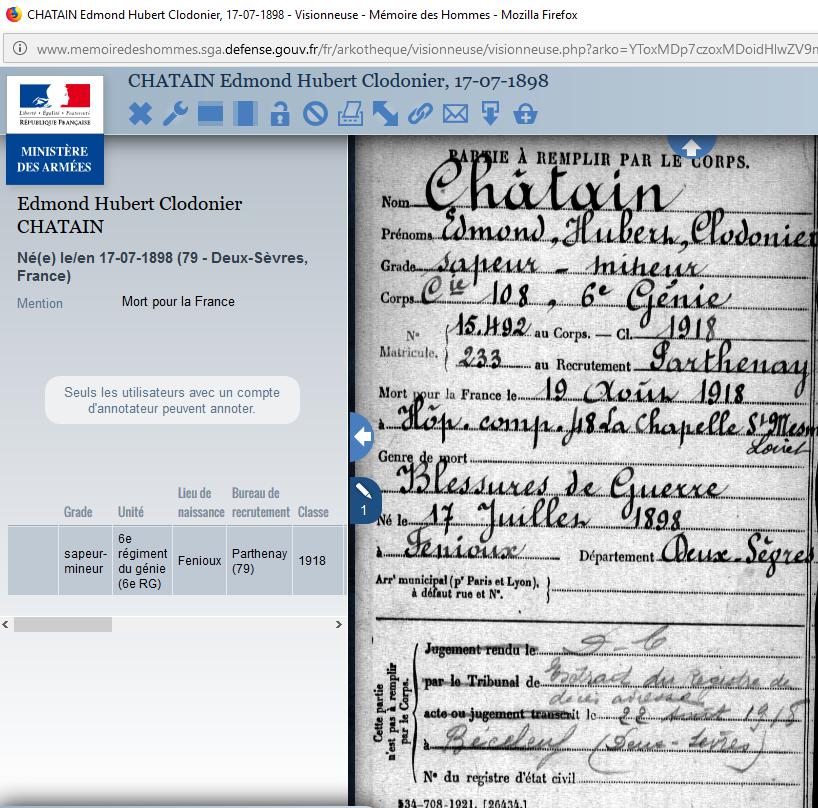 CHATAIN Edmond Hubert Clodonier, 17-07-1898 - Visionneuse - Mémoire des Hommes - Mozilla Firefox
www.memoiredeshommes.sga.defense.gouv.fr/fr/arkotheque/visionneuse/visionneuse.php?arko=YToxMDp7czoxMDoidHlwZV9n
CHATAIN Edmond Hubert Clodonier, 17-07-1898
Liberté • Égalité • Fraternité
RÉPUBLIQUE FRANÇAISE
MINISTÈRE
DES ARMÉES
Edmond Hubert Clodonier
CHATAIN
Né(e) le/en 17-07-1898 (79 - Deux-Sèvres,
France)
Mention Mort pour la France
Seuls les utilisateurs avec un compte
d'annotateur peuvent annoter.
Grade Unité Lieu de naissance Bureau de recrutement Classe
sapeur-mineur 6e régiment du génie (6e RG) Fenioux Parthenay (79) 1918
1
PARTIE À REMPLIR PAR LE CORPS.
Nom Châtain
Prénoms Edmond, Hubert, Clodonier
Grade sapeur - mineur
Corps Cie 108, 6e Génie
N° Matricule. 15.492 au Corps. — Cl. 1918
233 au Recrutement Parthenay
Mort pour la France le 19 Août 1918
à Hôp. comp. 48 La Chapelle St Mesm
Loiret
Genre de mort
Blessures de Guerre
Né le 17 Juillet 1898
à Fenioux Département Deux-Sèvres
Arrt municipal (pr Paris et Lyon),
à défaut rue et N°.
Cette partie n'est pas à remplir par le Corps.
Jugement rendu le
par le Tribunal de Extrait du registre de
décès adressé
acte ou jugement transcrit le 22 1918
à Béceleuf (Deux-Sèvres)
N° du registre d'état civil
534-708-1921. [26434.]